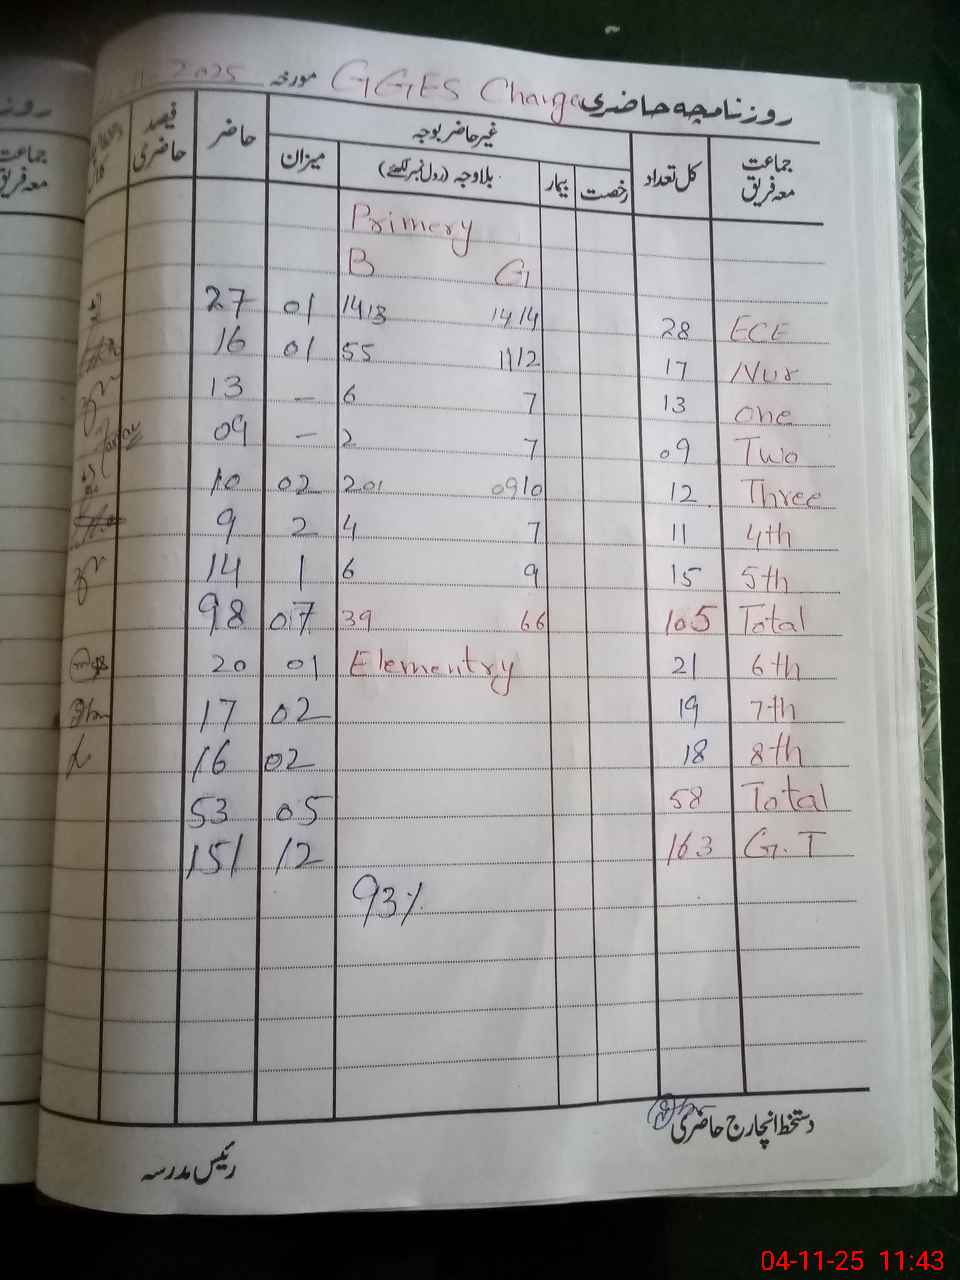 روزنامچہ حاضری GGES Charga مورخہ 11-2025
جماعت معہ فریق کل تعداد غیر حاضر بوجہ حاضر فیصد حاضری
رخصت بیمار بلاوجہ (رول نمبر لکھئے) میزان
Primery
B G
ECE 28 1413 1414 01 27
Nur 17 55 1112 01 16
One 13 6 7 – 13
Two 09 2 7 – 09
Three 12 201 0910 02 10
4th 11 4 7 2 9
5th 15 6 9 1 14
Total 105 39 66 07 98
6th 21 Elementry 01 20
7th 19 02 17
8th 18 02 16
Total 58 05 53
G.T 163 12 151
93%
دستخط انچارج حاضری
رئیس مدرسہ
04-11-25 11:43